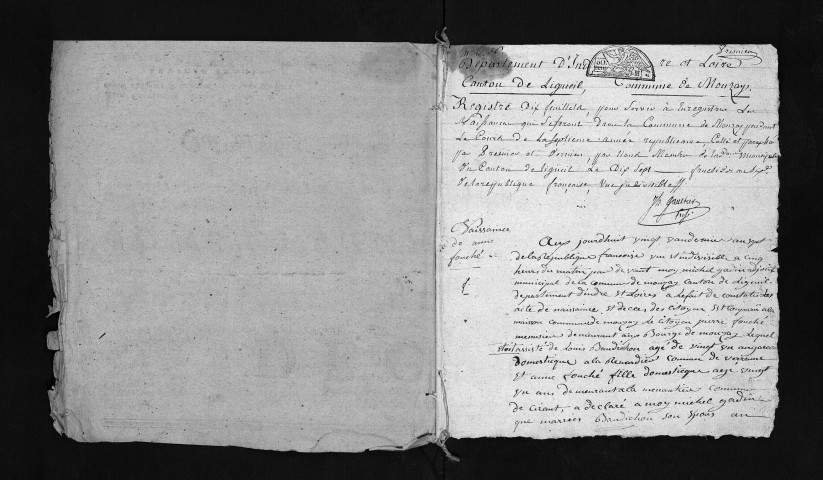 Premier
Département D'Indre et Loire
Canton de Ligueil, Commune de Mouzay
Registre Dix feuillets, pour servir à Enregistrer Les
Naissances qui Se feront dans la Commune de Mouzay pendant
Le Cours de La Septieme année republicaine Cotté et paraphé
par Premier et Dernier, par Nous Membre de
Du Canton de Ligueil Le Dix Sept fructidor an Six
de la republique française, une et indivisible
Naissance
de anne
fouché
Aux jourdhuit vingt vandemier an sept
de la République francoise une et indivisible a cinq
heure du matin par devant moy michel gadin adjoint
municipal de la commune de mouzay canton de Ligueil
departement dindre et Loires a lefait de constater les
acte de naissance et deces des citoyens est comparu a la
maison commune de mouzay le citoyen pierre fouché
menusier demeurant aux Bourg de mouzay Lequel
etoit assisté de Louis Baudichon agé de vingt un ans
domestique a la Renardiere commune de varenne
et anne fouché fille domestique agé vingt
un ans demeurant a la commune
de Ciran, a déclaré a moy michel gadin
que Baudichon son epous an